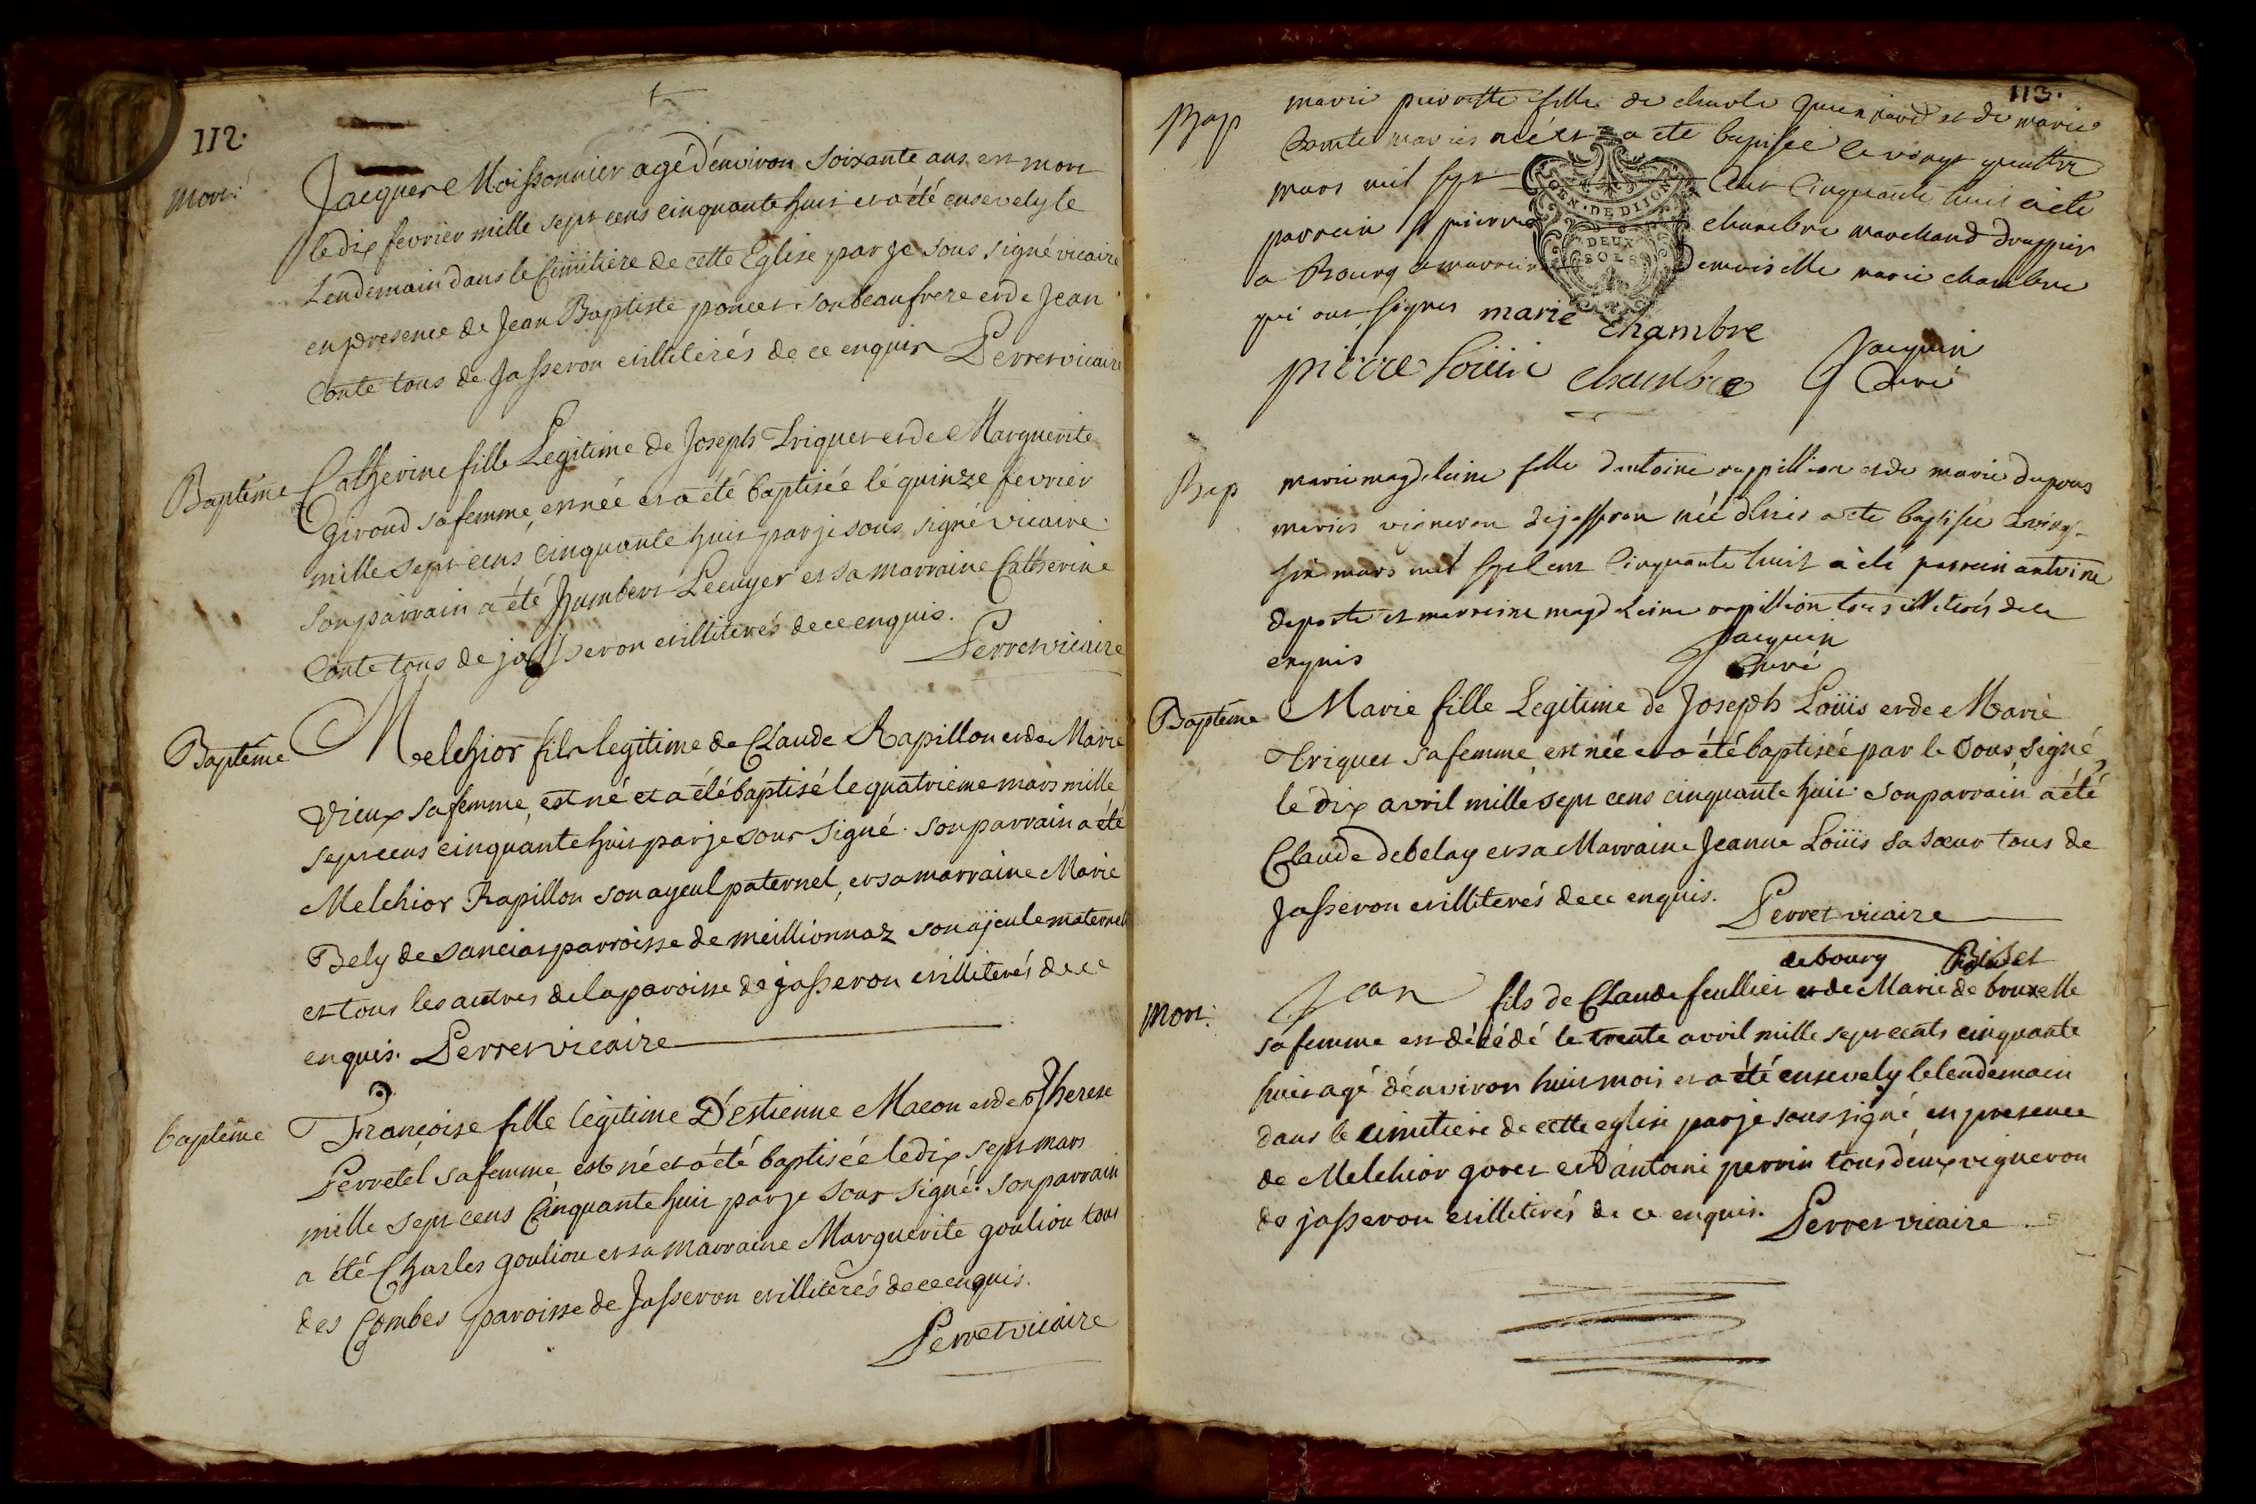 112.
Mort.
Jacques Moissonnier agé d'environ soixante ans est mort
le dix fevrier mille sept cens cinquante huit et a été ensevely le
Lendemain dans le Cimitiere de cette Eglise par je sous signé vicaire
en presence de Jean Baptiste poncet son beaufrere et de Jean
Conte tous de Jasseron et illiterés de ce enquis Perret vicaire
Baptême
Catherine fille Legitime de Joseph Triquet et de Marguerite
Giroud sa femme, est née et a été baptisée le quinze fevrier
mille sept cens cinquante huit par je sous signé vicaire
son parrain a été Humbert Lecuyer et sa marraine Catherine
Conte tous de jasseron et illiterés de ce enquis.
Perret vicaire
Baptême
Melchior fils legitime de Claude Rapillon et de Marie
Vieux sa femme, est né et a été baptisé le quatrieme mars mille
sept cens cinquante huit par je sous signé. son parrain a été
Melchior Rapillon son ayeul paternel, et sa marraine Marie
Bely de sanciat parroisse de meillionnaz son ajeule maternel
et tous les autres de la paroisse de jasseron et illiterés de ce
enquis. Perret vicaire
baptême
Françoise fille legitime D'estienne Macon et de Therese
Perretel sa femme est né et a été baptisée le dix sept mars
mille sept cens Cinquante huit par je sous signé: son parrain
a été Charles gouliou et sa marraine Marguerite gouliou tous
des Combes paroisse de Jasseron et illiterés de ce enquis.
Perret vicaire
113.
Bap
marie pierrette fille de charle et de marie
Comte mariés née et a ete baptisée le vingt quattre
mars mil sept cent cinquante huit a ete
parrain Sr pierre chambre marchand drappier
a Bourg et marreine Demoiselle marie chambre
qui ont signes marie chambre
pierre Loüis chambre Jacquin
Curé
GEN. DE DIJON
DEUX
SOLS
Bap
marie magdeleine fille dantoine rappillion et de marie dupons
mariés vigneron de jasseron née dhier a ete baptisée le vingt
six mars mil sept cent Cinquante huit a été parrein antoine
deporte et marreine magdeleine rapillion tous illiterés de ce
enquis
Jacquin
Curé
Baptême
Marie fille Legitime de Joseph Loüis et de Marie
Triquet sa femme est née et a été baptisée par le sous signé,
le dix avril mille sept cens cinquante huit. son parrain a été
Claude debelay et sa Marraine Jeanne Loüis sa sœur tous de
Jasseron et illiterés de ce enquis. Perret vicaire
de bourg
Mort.
Jean fils de Claude feullier et de Marie de bruxelle
sa femme est décédé le trente avril mille sept cents cinquante
huit agé d'énviron huit mois et a été ensevely le lendemain
dans le cimitiere de cette eglise par je sous signé, en presence
de Melchior goret et d'antoine perrin tous deux vigneron
de jasseron et illiterés de ce enquis. Perret vicaire